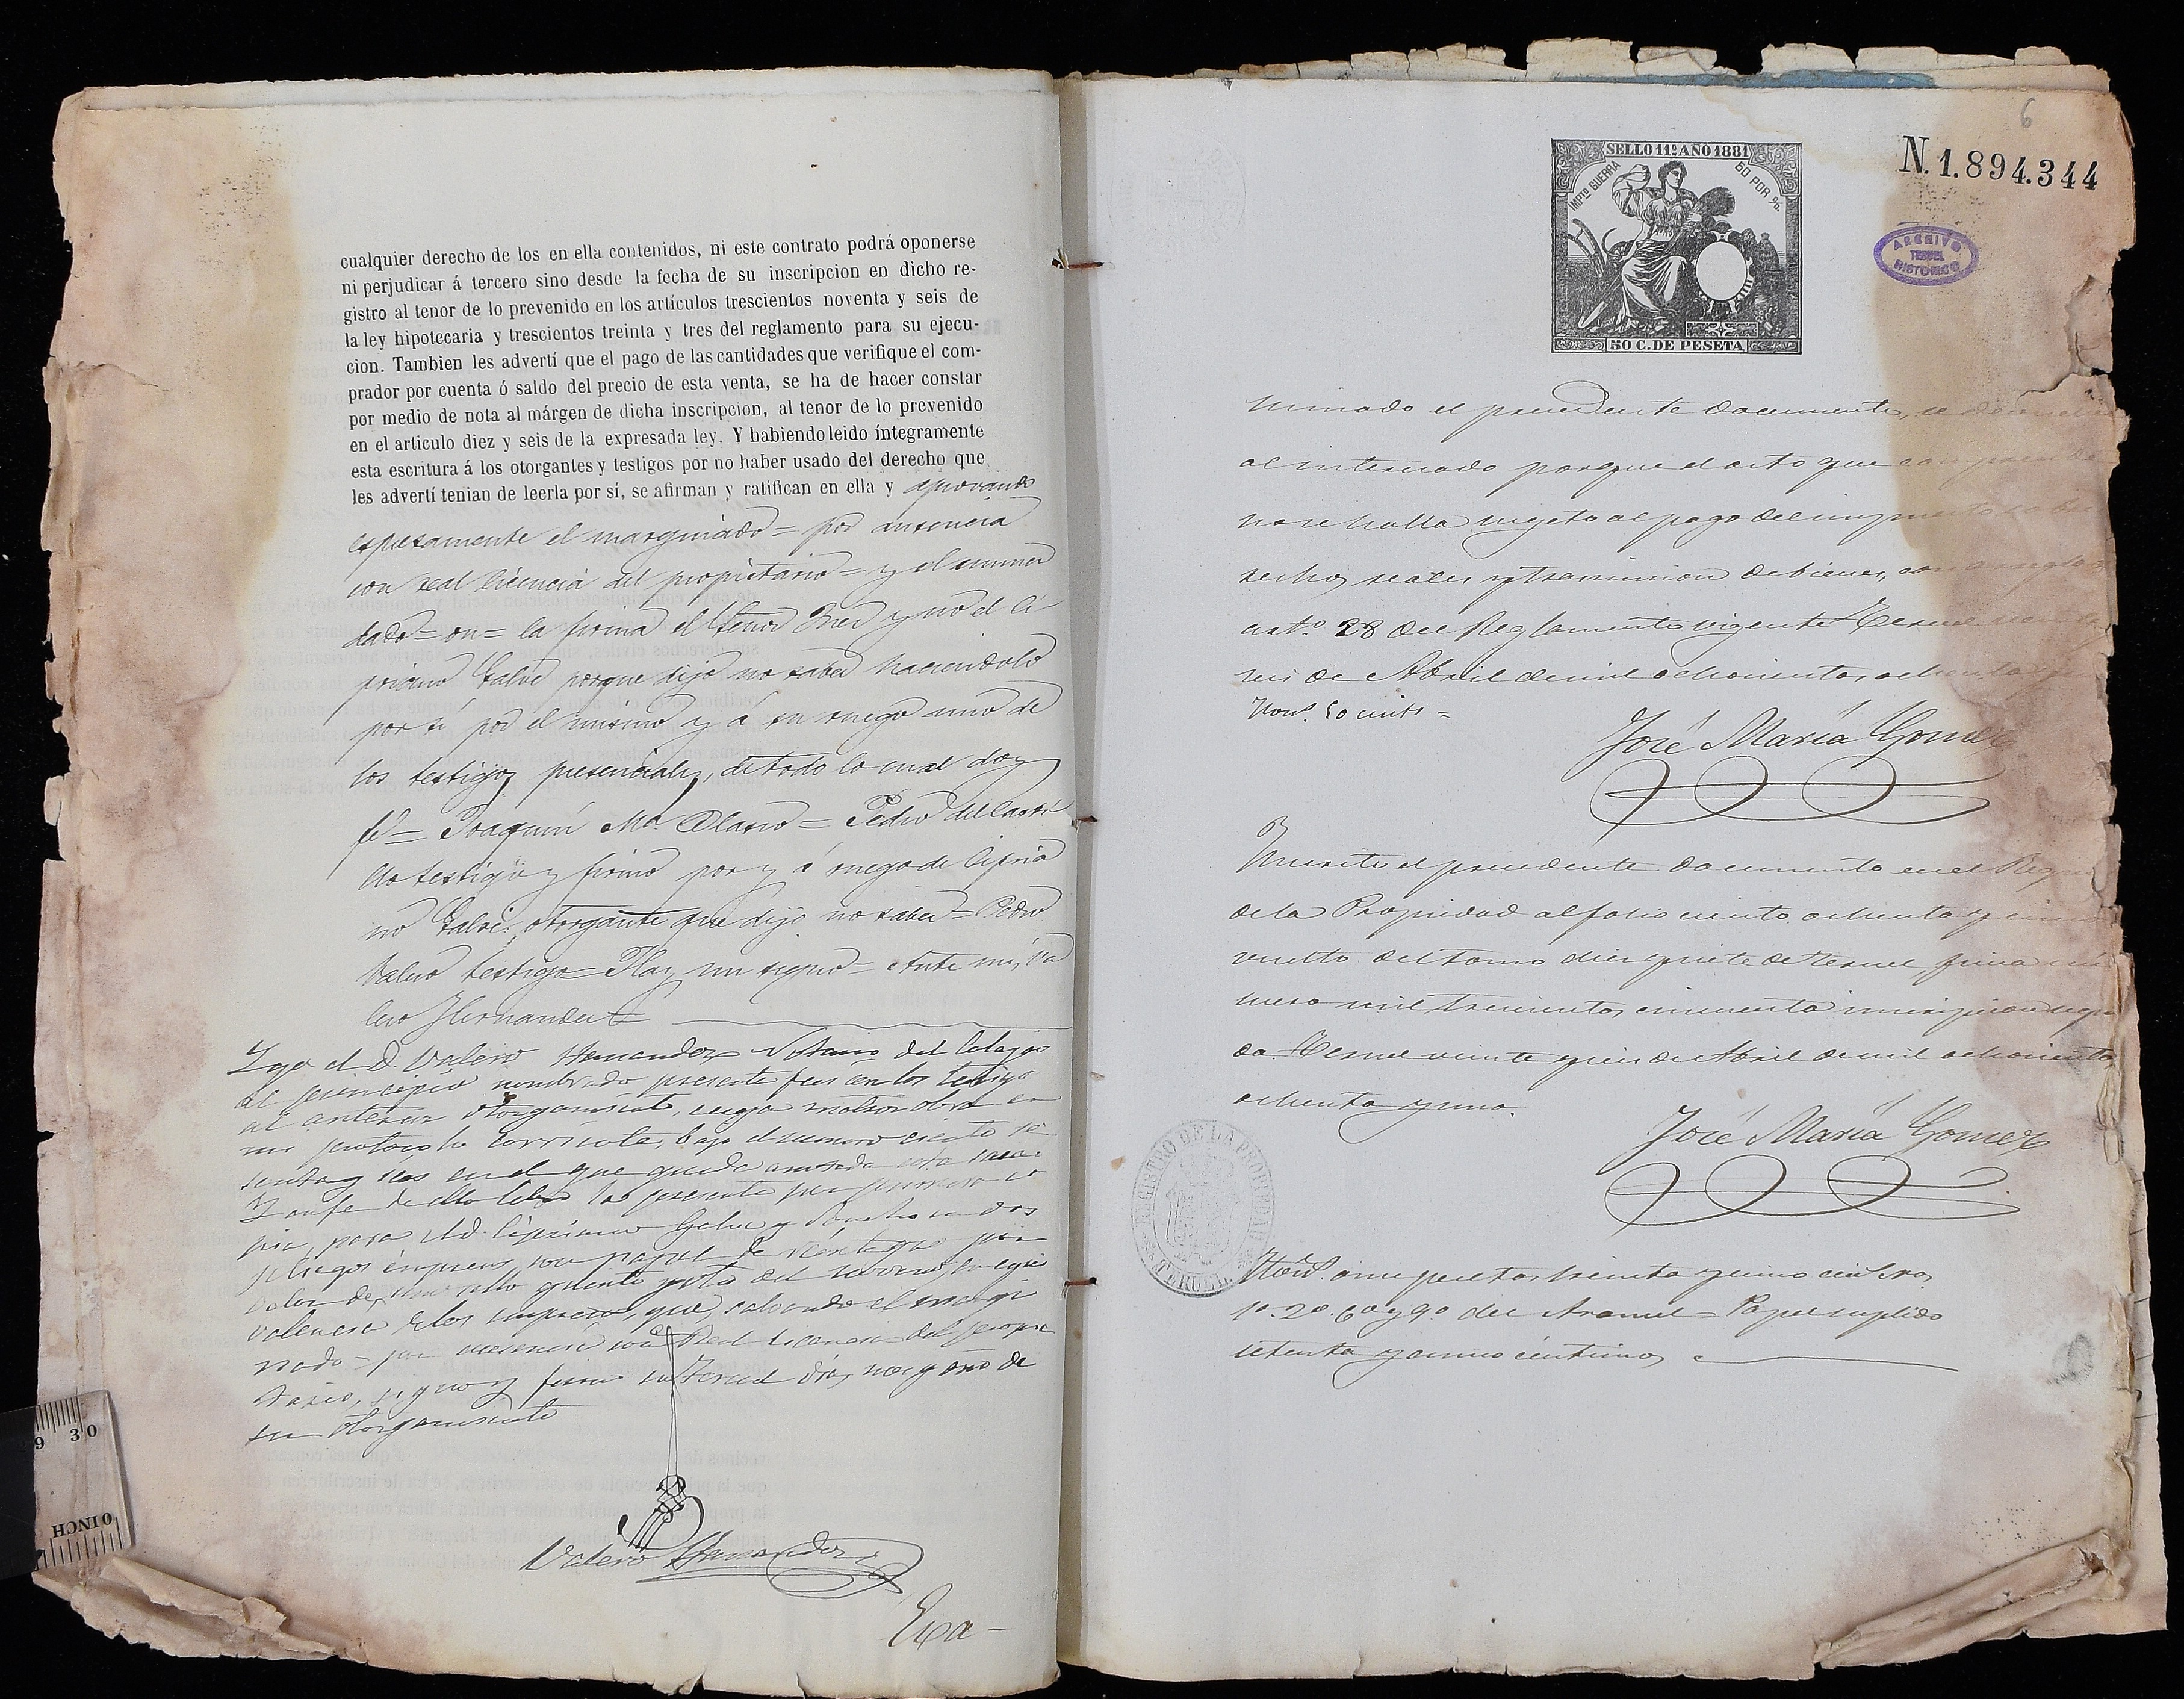 cualquier derecho de los en ella contenidos, ni este contrato podrá oponerse
ni perjudicar á tercero sino desde la fecha de su inscripcion en dicho re-
gistro al tenor de lo prevenido en los artículos trescientos noventa y seis de
la ley hipotecaria y trescientos treinta y tres del reglamento para su ejecu-
cion. Tambien les advertí que el pago de las cantidades que verifique el com-
prador por cuenta ó saldo del precio de esta venta, se ha de hacer constar
por medio de nota al márgen de dicha inscripcion, al tenor de lo prevenido
en el articulo diez y seis de la expresada ley. Y habiendo leido íntegramente
esta escritura á los otorgantes y testigos por no haber usado del derecho que
les advertí tenian de leerla por sí, se afirman y ratifican en ella y aprovando
espresamente el marginado = por ausencia
con real licencia del propietario = y el enmen
dado = on = la firma el Señor y no el Ci
priano Galve porque dijo no saber haciendolo
por si por el mismo y á su ruego uno de
los testigos presenciales, de todo lo cual doy
fé = Joaquin Mª = Pedro del Casti
llo testigo y firmo por y á ruego de Cipria
no Galve otorgante que dijo no saber = Pedro
Valero testigo = Hay un signo = Ante mi, Va
lero Hernandez
Yo el D. Valero Hernandez Notario del Colegio
al principio nombrado presente fui con los testigos
al anterior otorgamiento, cuya matriz obra en
mi protocolo corriente, bajo el numero ciento se
senta y tres en el que queda anotada esta saca
Y en fe de ello libro la presente por primera co
pia, para D. Cipriano Galve y en dos
pliegos impresos con papel de reintegro por
valor de un sello quinto y otro del noveno, en equi
valencia de los impresos, que, salvando el margi
nado = por ausencia con Real licencia del propie
tario, signo y firmo en Teruel dia, mes y año de
su otorgamiento
Valero Hernandez
Exa-
6
SELLO 11º AÑO 1881
IMPTO GUERRA
50 POR %
50 C. DE PESETA
N. 1.894.344
ARCHIVO
TERUEL
HISTÓRICO
minado el precedente documento, se devuelve
al interesado porque el acto que comprende
no se halla sugeto al pago del impuesto sobre
rechos reales y trasmision de bienes, con arreglo
artº 28 del Reglamento vigente Teruel
seis de Abril de mil ochocientos ochenta y
Hons. 50 cents =
José María Gomez
Inscrito el precedente documento en el Regis
de la Propiedad al folio ciento ochenta y cinco
vuelto del tomo diez y siete de Teruel finca nú
mero mil trescientos cincuenta inscripcion segun
da. Teruel veinte y seis de Abril de mil ochocientos
ochenta y uno.
José María Gomez
REGISTRO DE LA PROPIEDAD
TERUEL
Hons. once pesetas treinta y cinco centimos
1º 2º 6º y 9º del Arancel = Papel suplido
setenta y cinco céntimos
9 30
0 INCH